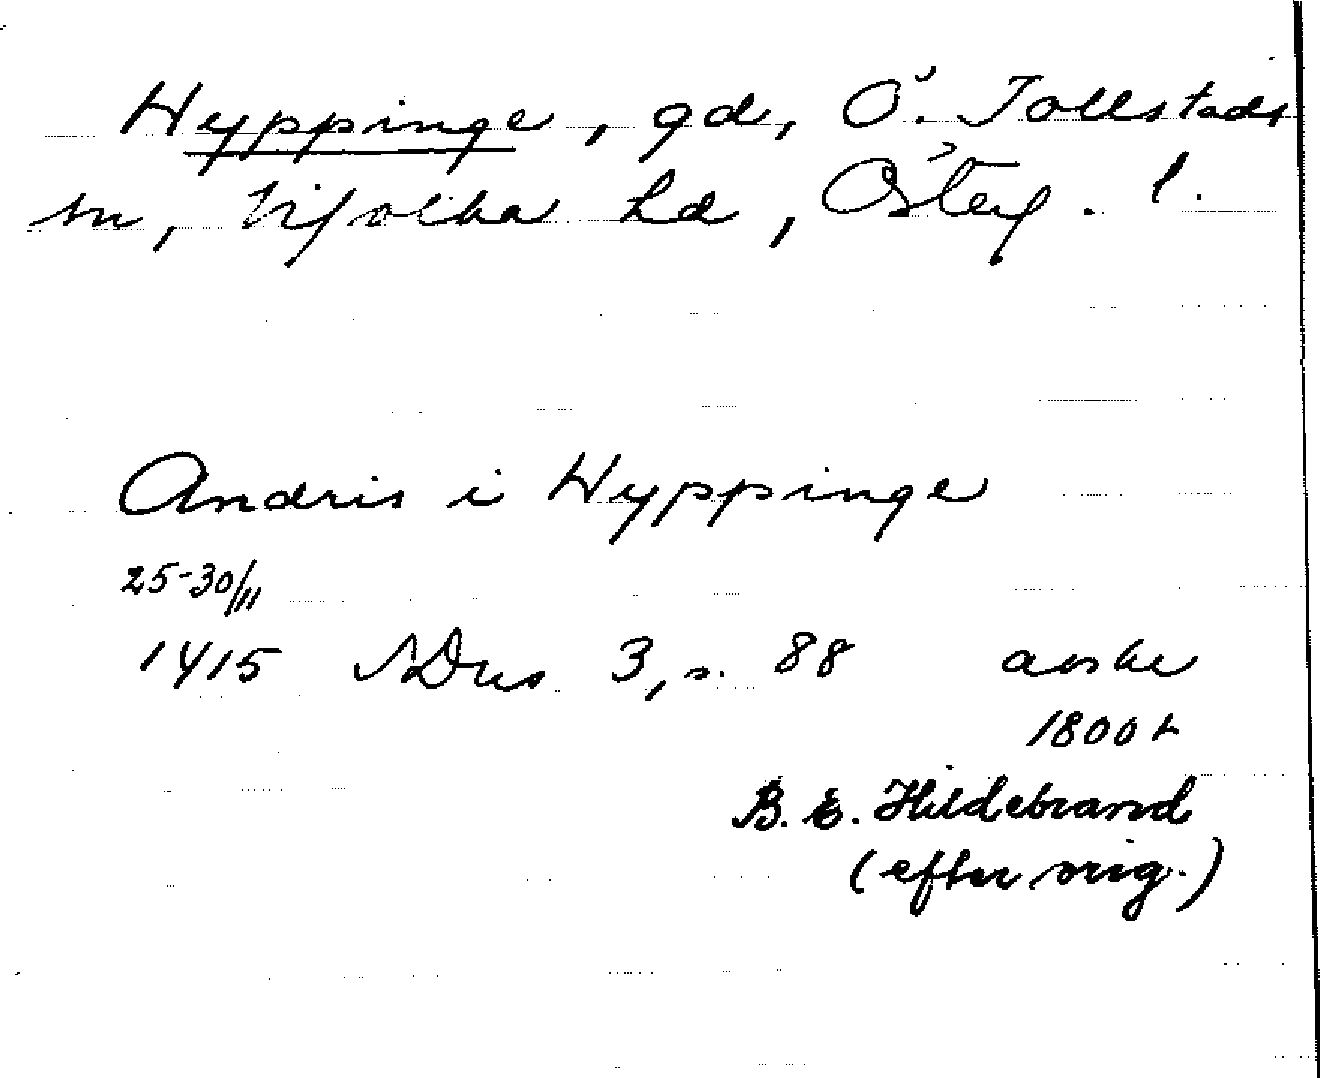 Hyppinge, gd, Ö. Tollstads
sn, Lysolka hd, Österg. l.
Andris i Hyppinge
25-30/11
1415 SDns 3, s. 88 avskr
1800 t
B. E. Hildebrand
(efter orig.)